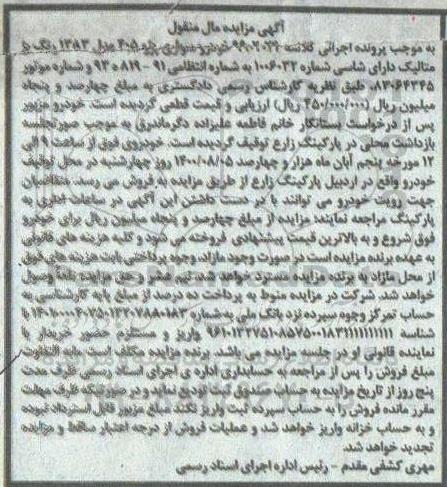 آگهی مزایده مال منقول
به موجب پرونده اجرائی کلاسه ۹۹۰۲۰۲۲ خودرو سواری پژو ۴۰۵ مدل ۱۳۸۳ رنگ
متالیک دارای شاسی شماره ۱۰۰۶۰۳۲ به شماره انتظامی ۹۱ - ۸۱۹ ۹۳ و شماره موتور
۸۳۰۶۴۳۴۵ طبق نظریه کارشناس رسمی دادگستری به مبلغ چهارصد و پنجاه
میلیون ریال (۴۵۰/۰۰۰/۰۰۰ ریال) ارزیابی و قیمت قطعی گردیده است. خودرو مزبور
پس از درخواست بستانکار خانم فاطمه علیزاده دگرماندرق به موجب صورتجلسه
بازداشت محلی در پارکینگ زارع توقیف گردیده است. خودروی فوق از ساعت ۹ الی
۱۲ مورخه پنجم آبان ماه هزار و چهارصد ۱۴۰۰/۰۸/۰۵ روز چهارشنبه در محل توقیف
خودرو واقع در اردبیل پارکینگ زارع از طریق مزایده به فروش می رسد. متقاضیان
جهت رویت خودرو می توانند با در دست داشتن این آگهی در ساعات اداری به
پارکینگ مراجعه نمایند؛ مزایده از مبلغ چهارصد و پنجاه میلیون ریال برای خودرو
فوق شروع و به بالاترین قیمت پیشنهادی فروخته می شود و کلیه هزینه های قانونی
به عهده برنده مزایده است در صورت وجود مازاد، وجوه پرداختی بابت هزینه های فوق
از محل مازاد به برنده مزایده مسترد خواهد شد، نیم عشر و حق مزایده نقداً وصول
خواهد شد. شرکت در مزایده منوط به پرداخت ده درصد از مبلغ پایه کارشناسی به
حساب تمرکز وجوه سپرده نزد بانک ملی به شماره با
شناسه واریز و مستلزم حضور خریدار یا
نماینده قانونی او در جلسه مزایده می باشد. برنده مزایده مکلف است مابه التفاوت
مبلغ فروش را پس از مراجعه به حسابداری اداره ی اجرای اسناد رسمی ظرف مدت
پنج روز از تاریخ مزایده به حساب صندوق ثبت تودیع نماید و در صورتیکه ظرف مهلت
مقرر مانده فروش را به حساب سپرده ثبت واریز نکند مبلغ مزبور قابل استرداد نبوده
و به حساب خزانه واریز خواهد شد و عملیات فروش از درجه اعتبار ساقط و مزایده
تجدید خواهد شد.
مهری کشفی مقدم - رئیس اداره اجرای اسناد رسمی